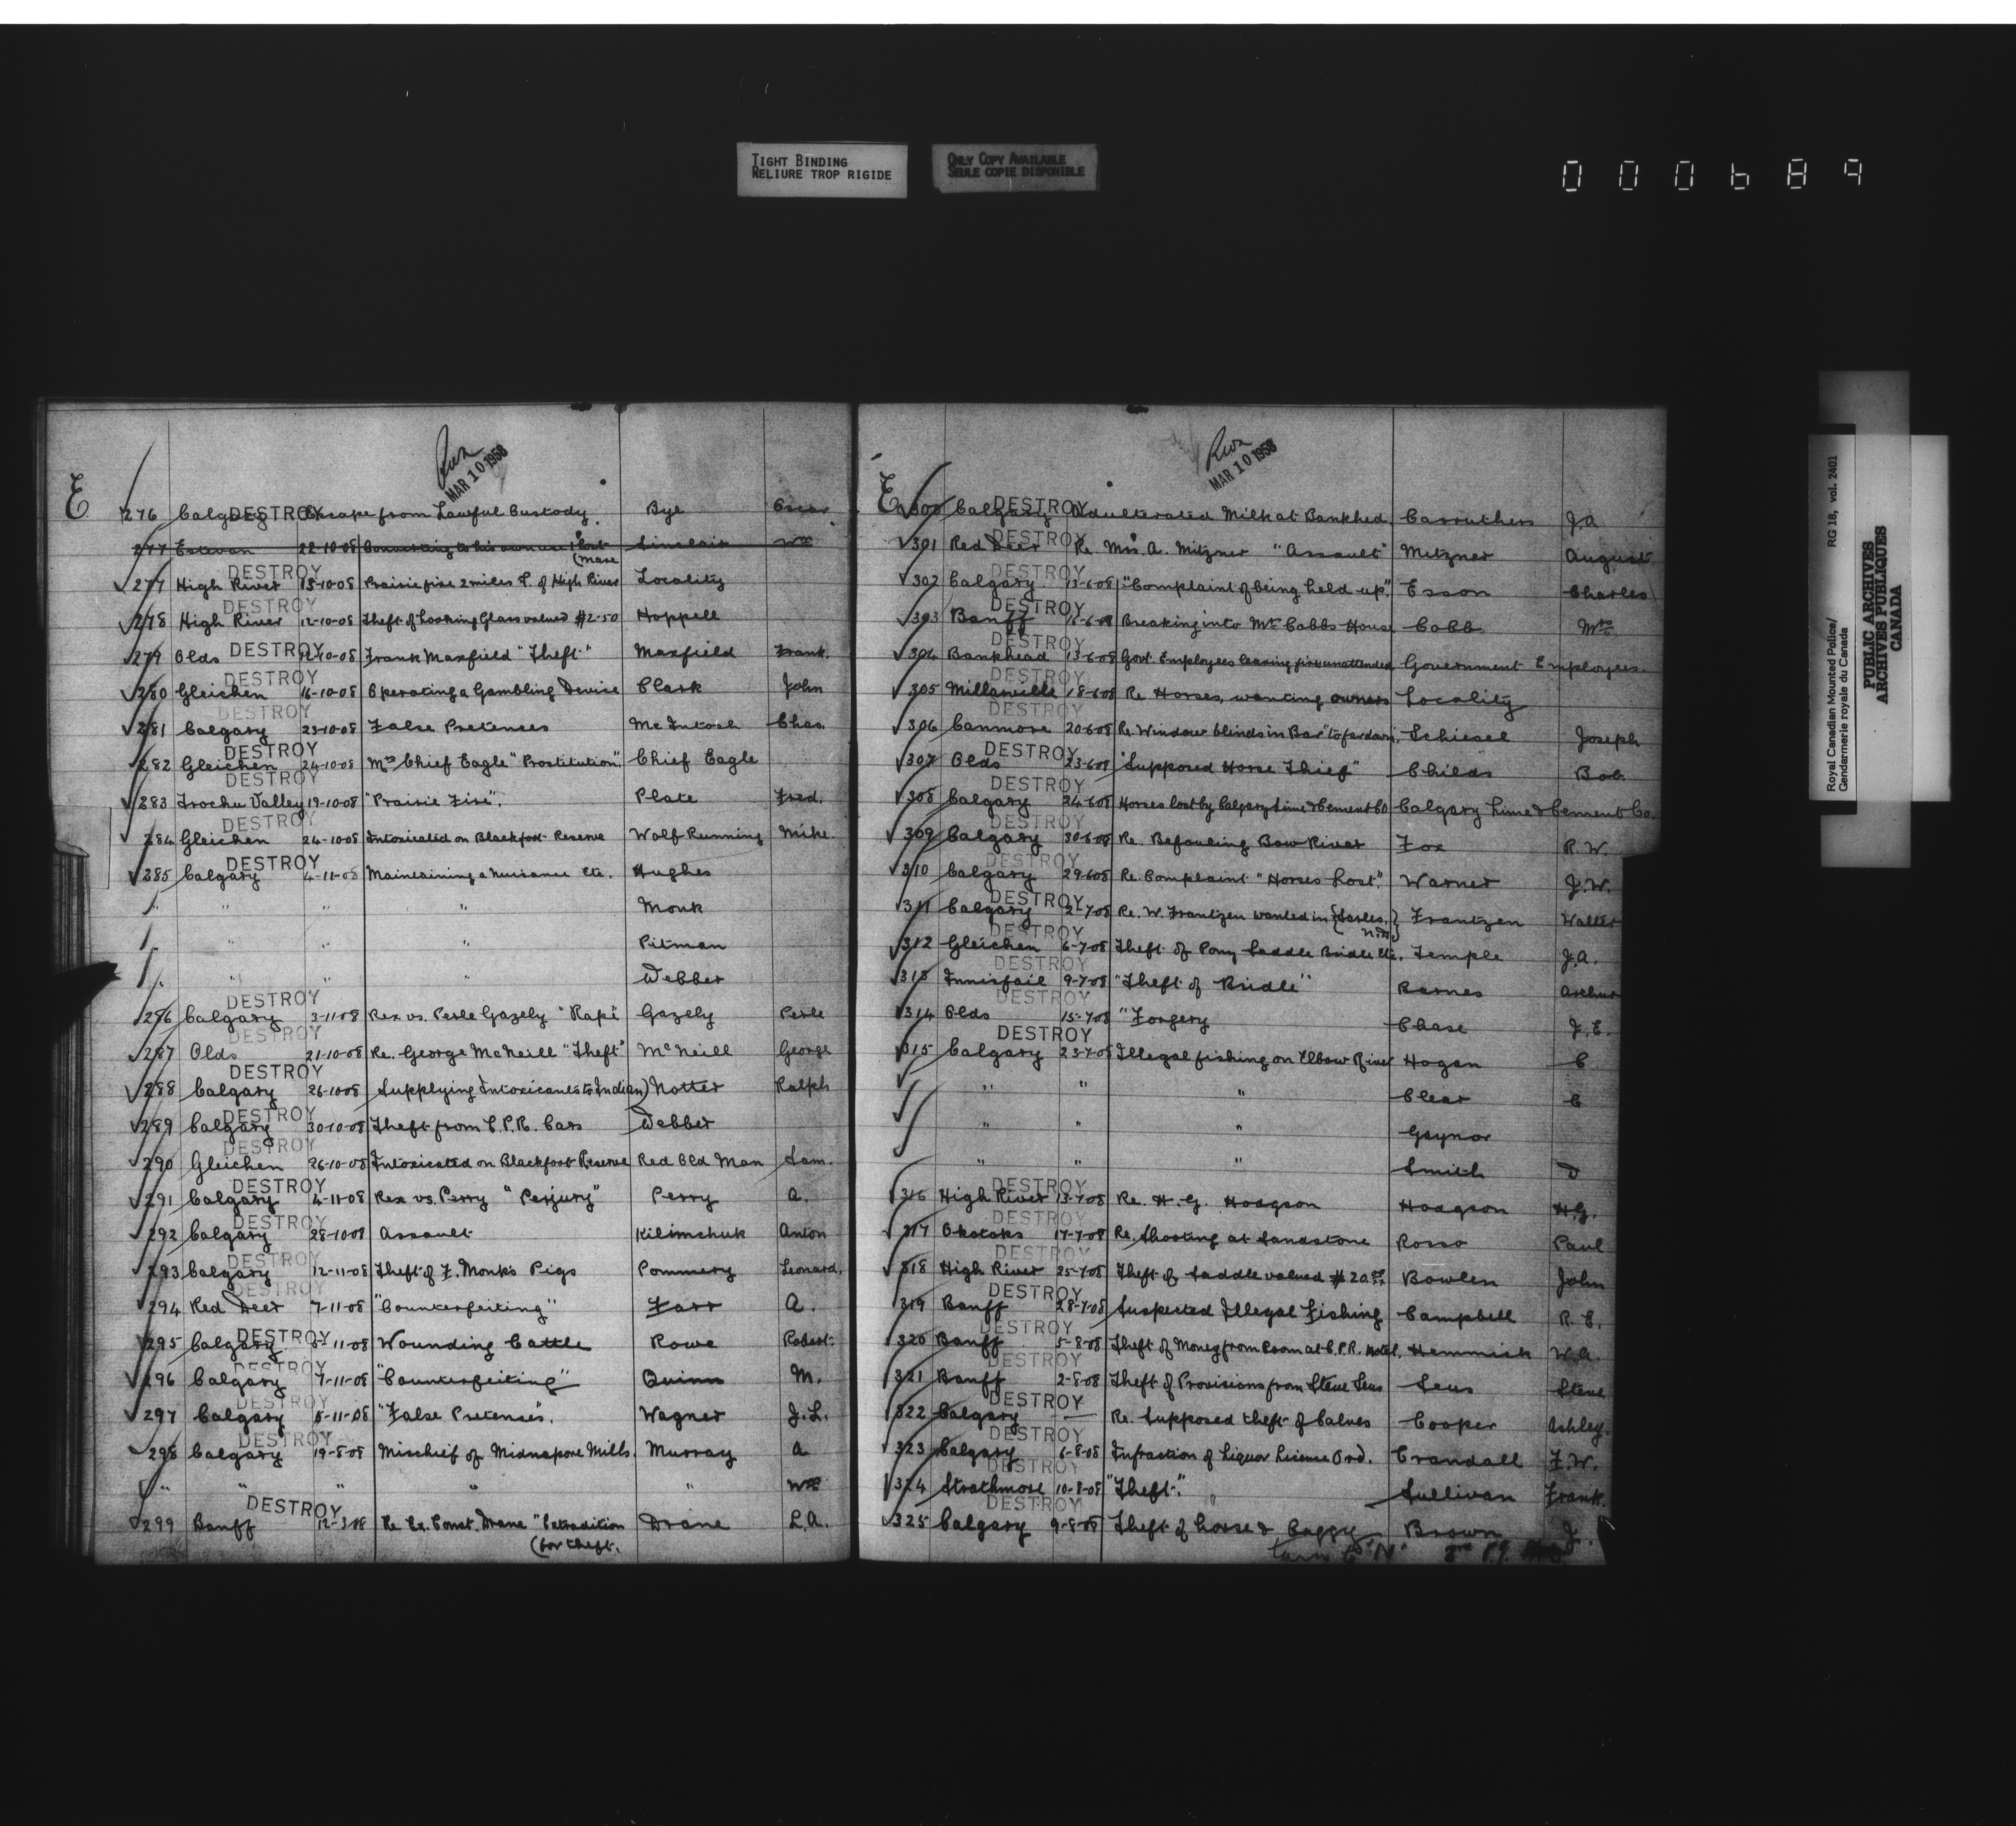 TIGHT BINDING
RELIURE TROP RIGIDE
ONLY COPY AVAILABLE
SEULE COPIE DISPONIBLE
000689
MAR 10 1958
E
276 Calgary DESTROY Escape from Lawful Custody. Bye Oscar
277 Estevan 22-10-08 Converting to his own use 1 lost (mare Sinclair Wm
DESTROY
277 High River 13-10-08 Prairie fire 2 miles E. of High River Locality
DESTROY
278 High River 12-10-08 Theft of Looking Glass valued $2-50 Hoppell
279 Olds DESTROY 12-10-08 Frank Maxfield "Theft" Maxfield Frank.
DESTROY
280 Gleichen 16-10-08 Operating a Gambling Device Clark John
DESTROY
281 Calgary 23-10-08 False Pretences McIntosh Chas.
DESTROY
282 Gleichen 24-10-08 Mrs Chief Eagle "Prostitution". Chief Eagle
DESTROY
283 Trochu Valley 19-10-08 "Prairie Fire". Plate Fred.
DESTROY
284 Gleichen 24-10-08 Intoxicated on Blackfoot Reserve Wolf Running Mike.
DESTROY
285 Calgary 4-11-08 Maintaining a Nuisance Etc. Hughes
" " " " Monk
" " " " Pitman
" " " " Webber
DESTROY
286 Calgary 3-11-08 Rex vs. Perle Gazely "Rape" Gazely Perle
DESTROY
287 Olds 21-10-08 Re. George McNeill "Theft" McNeill George
DESTROY
288 Calgary 26-10-08 Supplying Intoxicants to Indian) Notter Ralph
DESTROY
289 Calgary 30-10-08 Theft from C.P.R. Cars Webber
DESTROY
290 Gleichen 26-10-08 Intoxicated on Blackfoot Reserve Red Old Man Sam.
DESTROY
291 Calgary 4-11-08 Rex vs. Perry "Perjury" Perry A.
DESTROY
292 Calgary 28-10-08 Assault Kilimchuk Anton
DESTROY
293 Calgary 12-11-08 Theft of F. Monks Pigs Pommery Leonard.
DESTROY
294 Red Deer 7-11-08 "Counterfeiting" Farr A.
DESTROY
295 Calgary 5-11-08 Wounding Cattle Rowe Robert.
DESTROY
296 Calgary 7-11-08 "Counterfeiting" Quinn M.
DESTROY
297 Calgary 5-11-08 "False Pretenses". Wagner J.L.
DESTROY
298 Calgary 19-8-08 Mischief of Midnapore Mills. Murray A
" " " " Wm
DESTROY
299 Banff 12-3-08 Re Ex. Const. Drane "Extradition Drane L.A.
(for theft.
MAR 10 1958
E
300 Calgary DESTROY Adulterated Milk at Bankhed. Carruthers J.A
DESTROY
301 Red Deer Re Mrs A. Mitzner "Assault" Mitzner August
DESTROY
302 Calgary 13-6-08 "Complaint of being held up". Esson Charles
DESTROY
303 Banff 16-6-08 Breaking into Mrs Cobbs House Cobb Mrs
DESTROY
304 Bankhead 13-6-08 Govt. Employees leaving fire unattended Government Employees.
DESTROY
305 Millarville 18-6-08 Re Horses, wanting owners Locality
DESTROY
306 Canmore 20-6-08 Re. Window blinds in Bar "to far down. Schiesel Joseph
DESTROY
307 Olds 23-6-08 "Supposed Horse Thief" Childs Bob
DESTROY
308 Calgary 24-6-08 Horses lost by Calgary Lime & Cement Co Calgary Lime & Cement Co.
DESTROY
309 Calgary 30-6-08 Re. Befouling Bow River Fox R.W.
DESTROY
310 Calgary 29-6-08 Re. Complaint "Horses Lost". Warner J.W.
DESTROY
311 Calgary 2-7-08 Re. W. Frantzen wanted in Frantzen Walter
DESTROY
312 Gleichen 6-7-08 Theft of Pony Saddle Bridle Etc. Temple J.A.
DESTROY
313 Innisfail 9-7-08 "Theft of Bridle" Barnes Arthur
DESTROY
314 Olds 15-7-08 "Forgery Chase J.E.
DESTROY
315 Calgary 23-7-08 Illegal fishing on Elbow River Hogan C
" " Clear C
" " " Gaynor
" " " Smith D
DESTROY
316 High River 13-7-08 Re. H.G. Hodgson Hodgson H.G.
DESTROY
317 Okotoks 17-7-08 Re. Shooting at Sandstone Rosso Paul
DESTROY
318 High River 25-7-08 Theft of Saddle valued $20.00 Bowlen John
DESTROY
319 Banff 28-7-08 Suspected Illegal Fishing Campbell R.C.
DESTROY
320 Banff 5-8-08 Theft of Money from Room at C.P.R. Hotel. Hemmick W.A.
DESTROY
321 Banff 2-8-08 Theft of Provisions from Steve Seus Seus Steve
DESTROY
322 Calgary — Re. Supposed theft of Calves Cooper Ashley.
DESTROY
323 Calgary 6-8-08 Infraction of Liquor License Ord. Crandall F.W.
DESTROY
324 Strathmore 10-8-08 "Theft". Sullivan Frank.
DESTROY
325 Calgary 9-8-08 Theft of horse & Buggy Brown J.
Royal Canadian Mounted Police/ RG 18, vol. 2401
Gendarmerie royale du Canada
PUBLIC ARCHIVES
ARCHIVES PUBLIQUES
CANADA